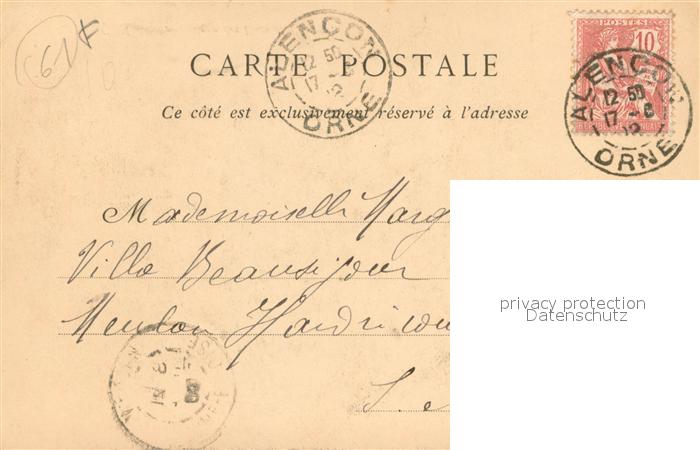 61
CARTE POSTALE
Ce côté est exclusivement réservé à l'adresse
ALENÇON
12 50
17 - 8
ORNE
POSTES
10
ALENÇON
12 50
17 - 8
ORNE
Mademoiselle Marg
Villa Beauséjour
Meulan Hardricourt
S. e
privacy protection
Datenschutz